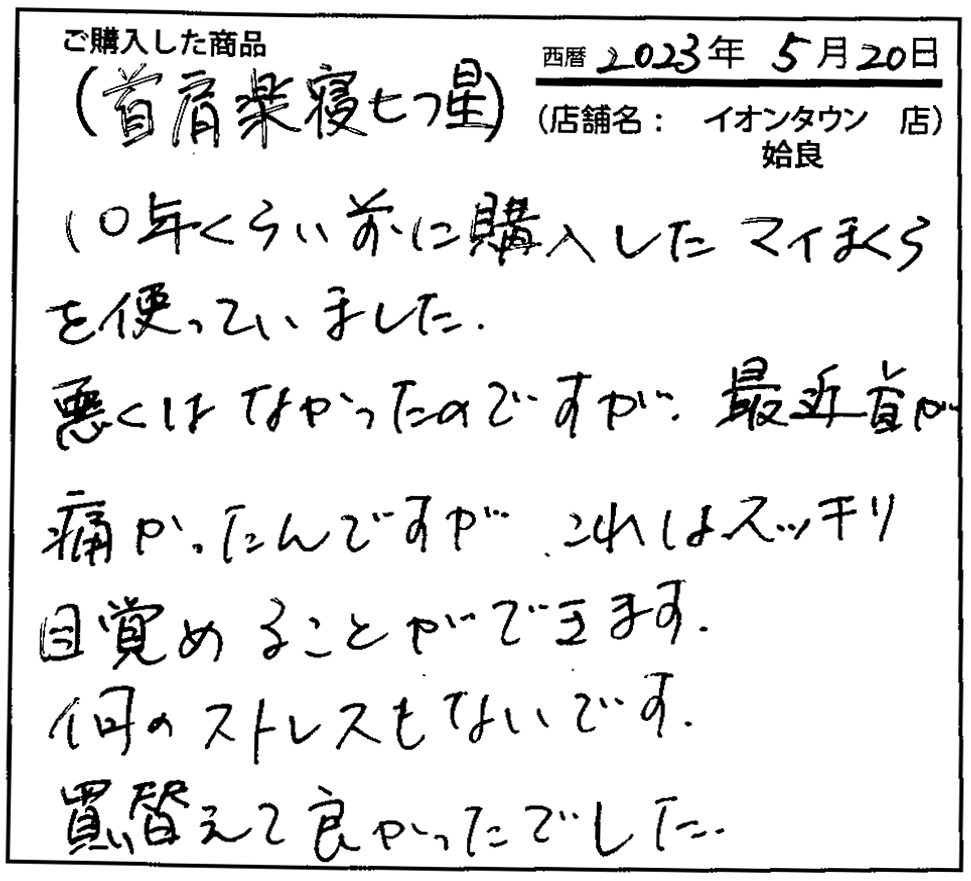 ご購入した商品
西暦 2023年 5月20日
(首肩楽寝七つ星)
(店舗名： イオンタウン 店)
姶良
10年くらい前に購入したマイまくら
を使っていました.
悪くはなかったのですが、最近首が
痛かったんですが、これはスッキリ
目覚めることができます.
何のストレスもないです.
買替えて良かったでした.